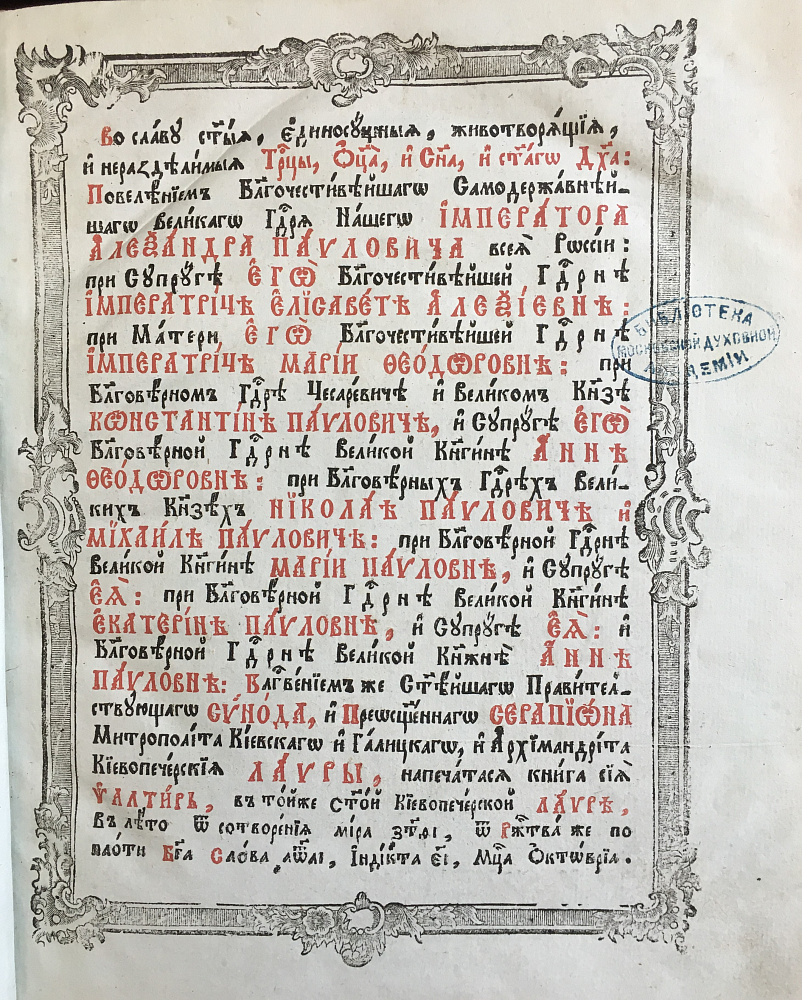 Во сла́вꙋ ст҃ы́ѧ, є҆диносꙋ́щныѧ, животворѧ́щїѧ,
и҆ нераздѣ́лимыѧ Трⷪ҇цы, Ѻ҆ц҃а̀, и҆ Сн҃а, и҆ ст҃а́гѡ Дх҃а:
Повелѣ́нїемъ Бл҃гочести́вѣйшагѡ Самодержа́внѣй-
шагѡ вели́кагѡ Гдⷭ҇рѧ̀ На́шегѡ І҆МПЕРА́ТОРА
А҆ЛЕѮА́НДРА ПА́ѴЛОВИЧА всеѧ̀ Рѡссі́и:
при Сꙋпрꙋ́гѣ Є҆ГѠ̀ Бл҃гочести́вѣйшей Гдⷭ҇рнѣ
І҆МПЕРАТРІ́ЧѢ Є҆ЛІСАВЕ́ТѢ А҆ЛЕѮІ́ЕВНѢ:
при Ма́тери, Є҆ГѠ̀ Бл҃гочести́вѣйшей Гдⷭ҇рнѣ
І҆МПЕРАТРІ́ЧѢ МАРІ́И ѲЕО́ДѠРОВНѢ: при
Бл҃говѣ́рномъ Гдⷭ҇рѣ Чесаре́вичѣ и҆ Вели́комъ Кн҃зѣ
КѠНСТАНТІ́НѢ ПА́ѴЛОВИЧѢ, и҆ Сꙋпрꙋ́гѣ Є҆ГѠ̀
Бл҃говѣ́рной Гдⷭ҇рнѣ Вели́кой Кн҃ги́нѣ А҆́ННѢ
ѲЕО́ДѠРОВНѢ: при Бл҃говѣ́рныхъ Гдⷭ҇рѣхъ Вели́-
кихъ Кн҃зѣ́хъ НІКОЛА́Ѣ ПА́ѴЛОВИЧѢ и҆
МІХАИ́ЛѢ ПА́ѴЛОВИЧѢ: при Бл҃говѣ́рной Гдⷭ҇рнѣ
Вели́кой Кн҃ги́нѣ МАРІ́И ПА́ѴЛОВНѢ, и҆ Сꙋпрꙋ́гѣ
Є҆Ѧ̀: при Бл҃говѣ́рной Гдⷭ҇рнѣ Вели́кой Кн҃ги́нѣ
Є҆КАТЕРІ́НѢ ПА́ѴЛОВНѢ, и҆ Сꙋпрꙋ́гѣ Є҆Ѧ̀: и҆
Бл҃говѣ́рной Гдⷭ҇рнѣ Вели́кой Кн҃жнѣ̀ А҆́ННѢ
ПА́ѴЛОВНѢ: Бл҃гве́нїемъ же Ст҃ѣ́йшагѡ Прави́тел-
ствꙋющагѡ СѴНО́ДА, и҆ Преѡсщ҃е́ннагѡ СЕРАПІѠ́НА
Митрополі́та Кі́евскагѡ и҆ Га́лицкагѡ, и҆ А҆рхімандрі́та
Кїевопече́рскїѧ ЛА́ѴРЫ, напеча́тасѧ кни́га сїѧ̀
Ѱ҆АЛТИ́РЬ, въ то́йже ст҃о́й Кїевопече́рской ЛА́ѴРѢ,
въ лѣ́то ѿ сотворе́нїѧ мі́ра ҂зт҃ѳі, ѿ Рж҃тва́ же по
пло́ти Бг҃а Сло́ва ҂аѿ҃аі, І҆нді́кта є҃і, Мц҃а О҆ктѡ́врїа.
БИБЛІОТЕКА
МОСКОВСКОЙ ДУХОВНОЙ
АКАДЕМІИ